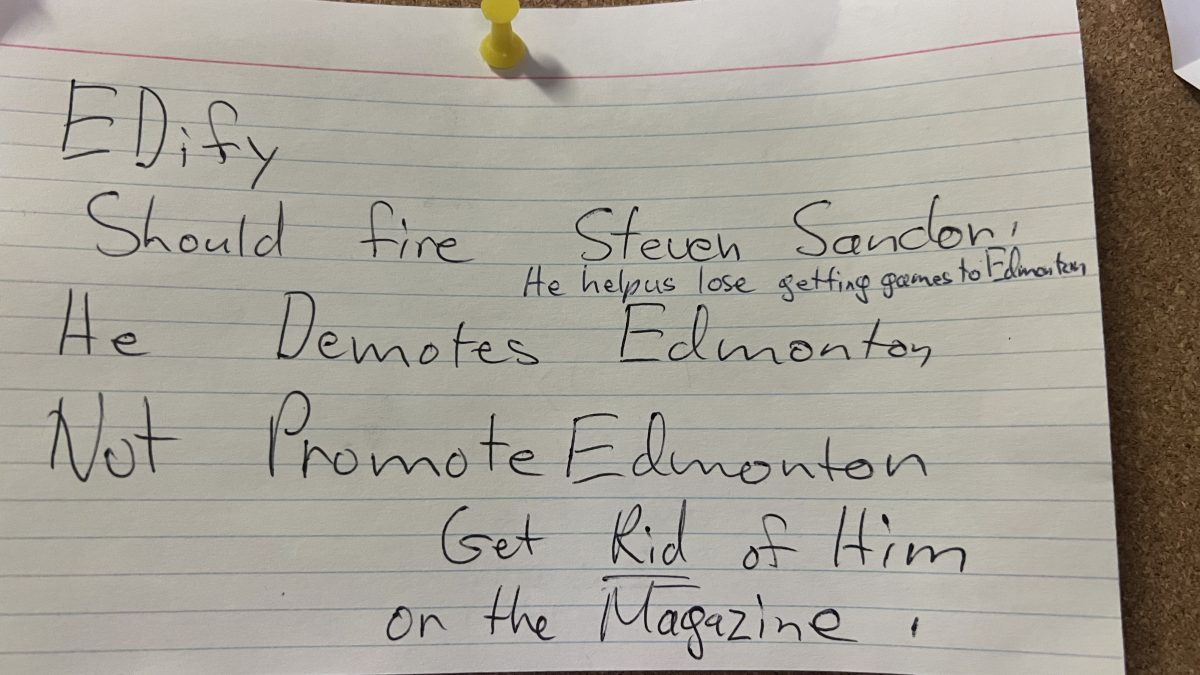 EDify
Should fire Steven Sandor.
He helpus lose getting games to Edmonton
He Demotes Edmonton
Not Promote Edmonton
Get Rid of Him
on the Magazine.